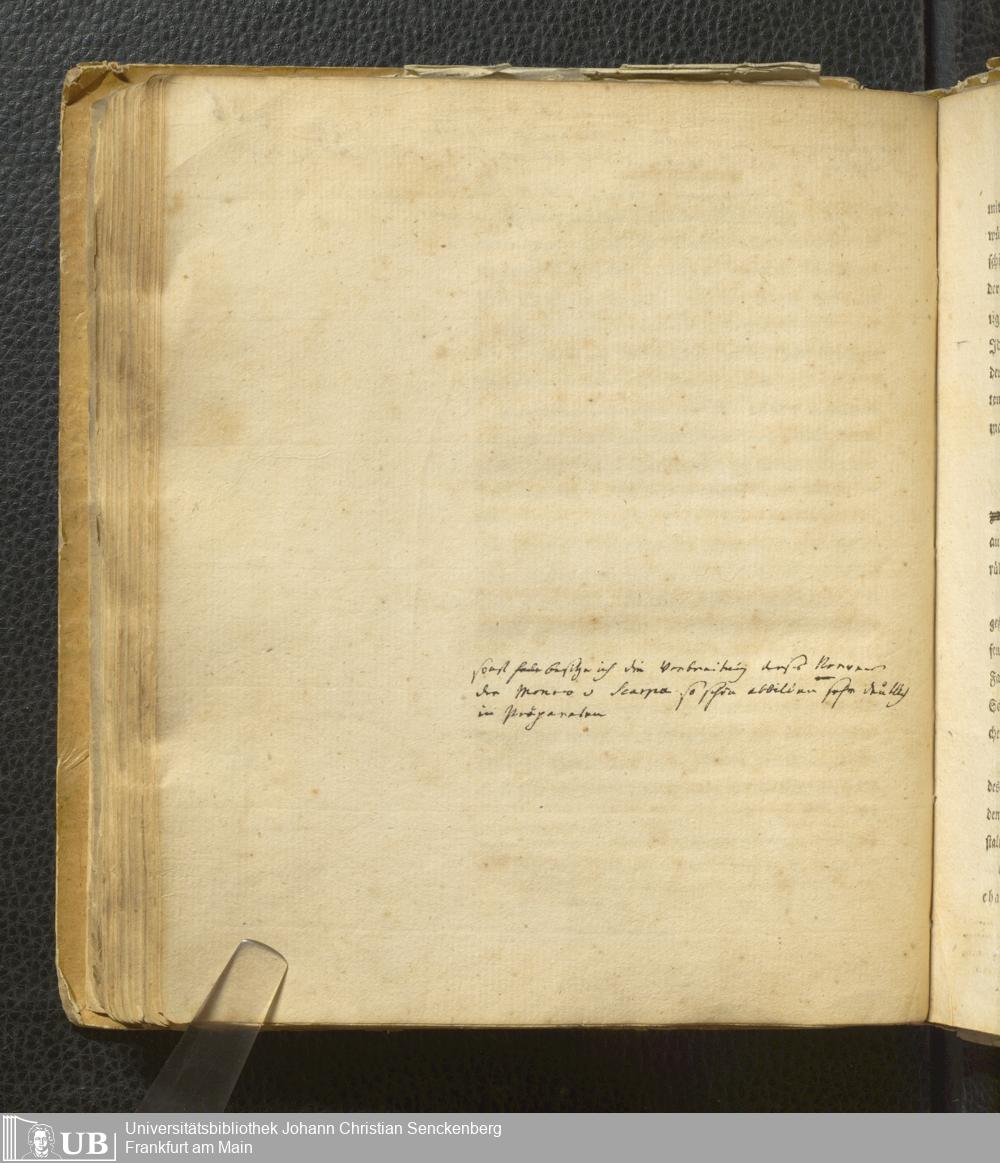 sonst habe besitze ich die Verbreitung dieses Nerven
den Monro u Scarpa so schön abbilden sehr deutlich
in Präparaten
mit
wü
sch
der
rig
de
ten
au
rü
ge
chen
des
den
stal
cha
UB
Universitätsbibliothek Johann Christian Senckenberg
Frankfurt am Main